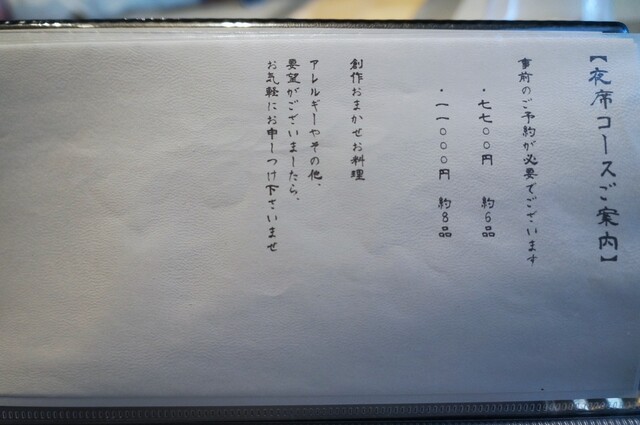 【夜席コースご案内】
事前のご予約が必要でございます
・七七〇〇円 約6品
・一一〇〇〇円 約8品
創作おまかせお料理
アレルギーやその他、
要望がございましたら、
お気軽にお申しつけ下さいませ